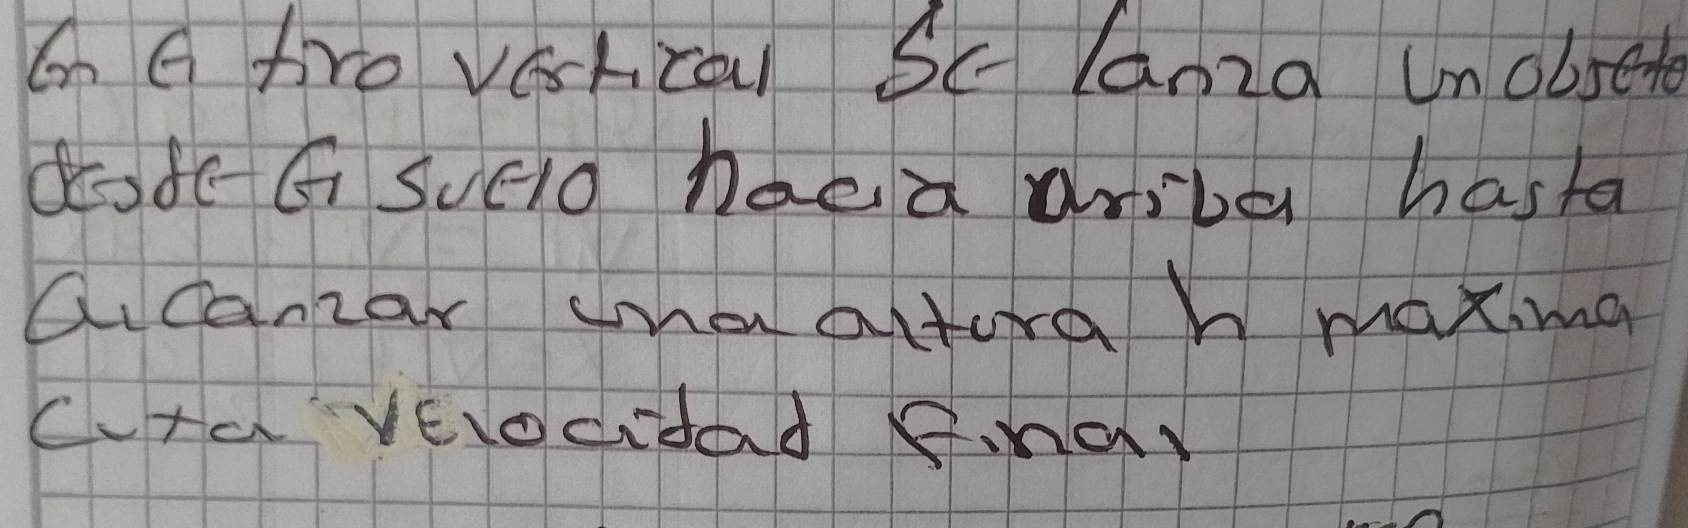 En el tiro vertical Se lanza un objeto
desde el suelo hacia arriba hasta
alcanzar una altura h maxima
cuya velocidad final